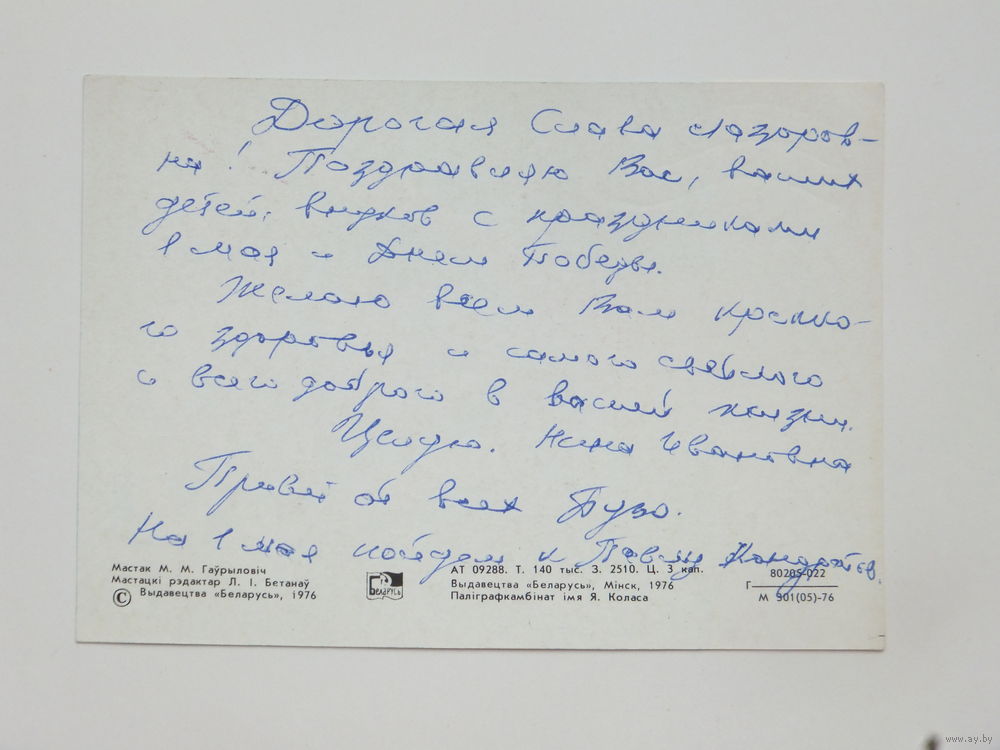 Дорогая Слава Лазоров-
на! Поздравляю Вас, ваших
детей, внуков с праздниками
1 мая и Днем Победы.
Желаю всем Вам крепко-
го здоровья и самого светлого
и всего доброго в вашей жизни.
Целую. Нина Ивановна
Привет от всех
На 1 мая пойдем к
Мастак М. М. Гаўрыловіч
Мастацкі рэдактар Л. І. Бетанаў
© Выдавецтва «Беларусь», 1976
Беларусь
АТ 09288. Т. 140 тыс. З. 2510. Ц. 3 кап.
Выдавецтва «Беларусь», Мінск, 1976
Паліграфкамбінат імя Я. Коласа
80205-022
Г
М 301(05)-76
www.ay.by